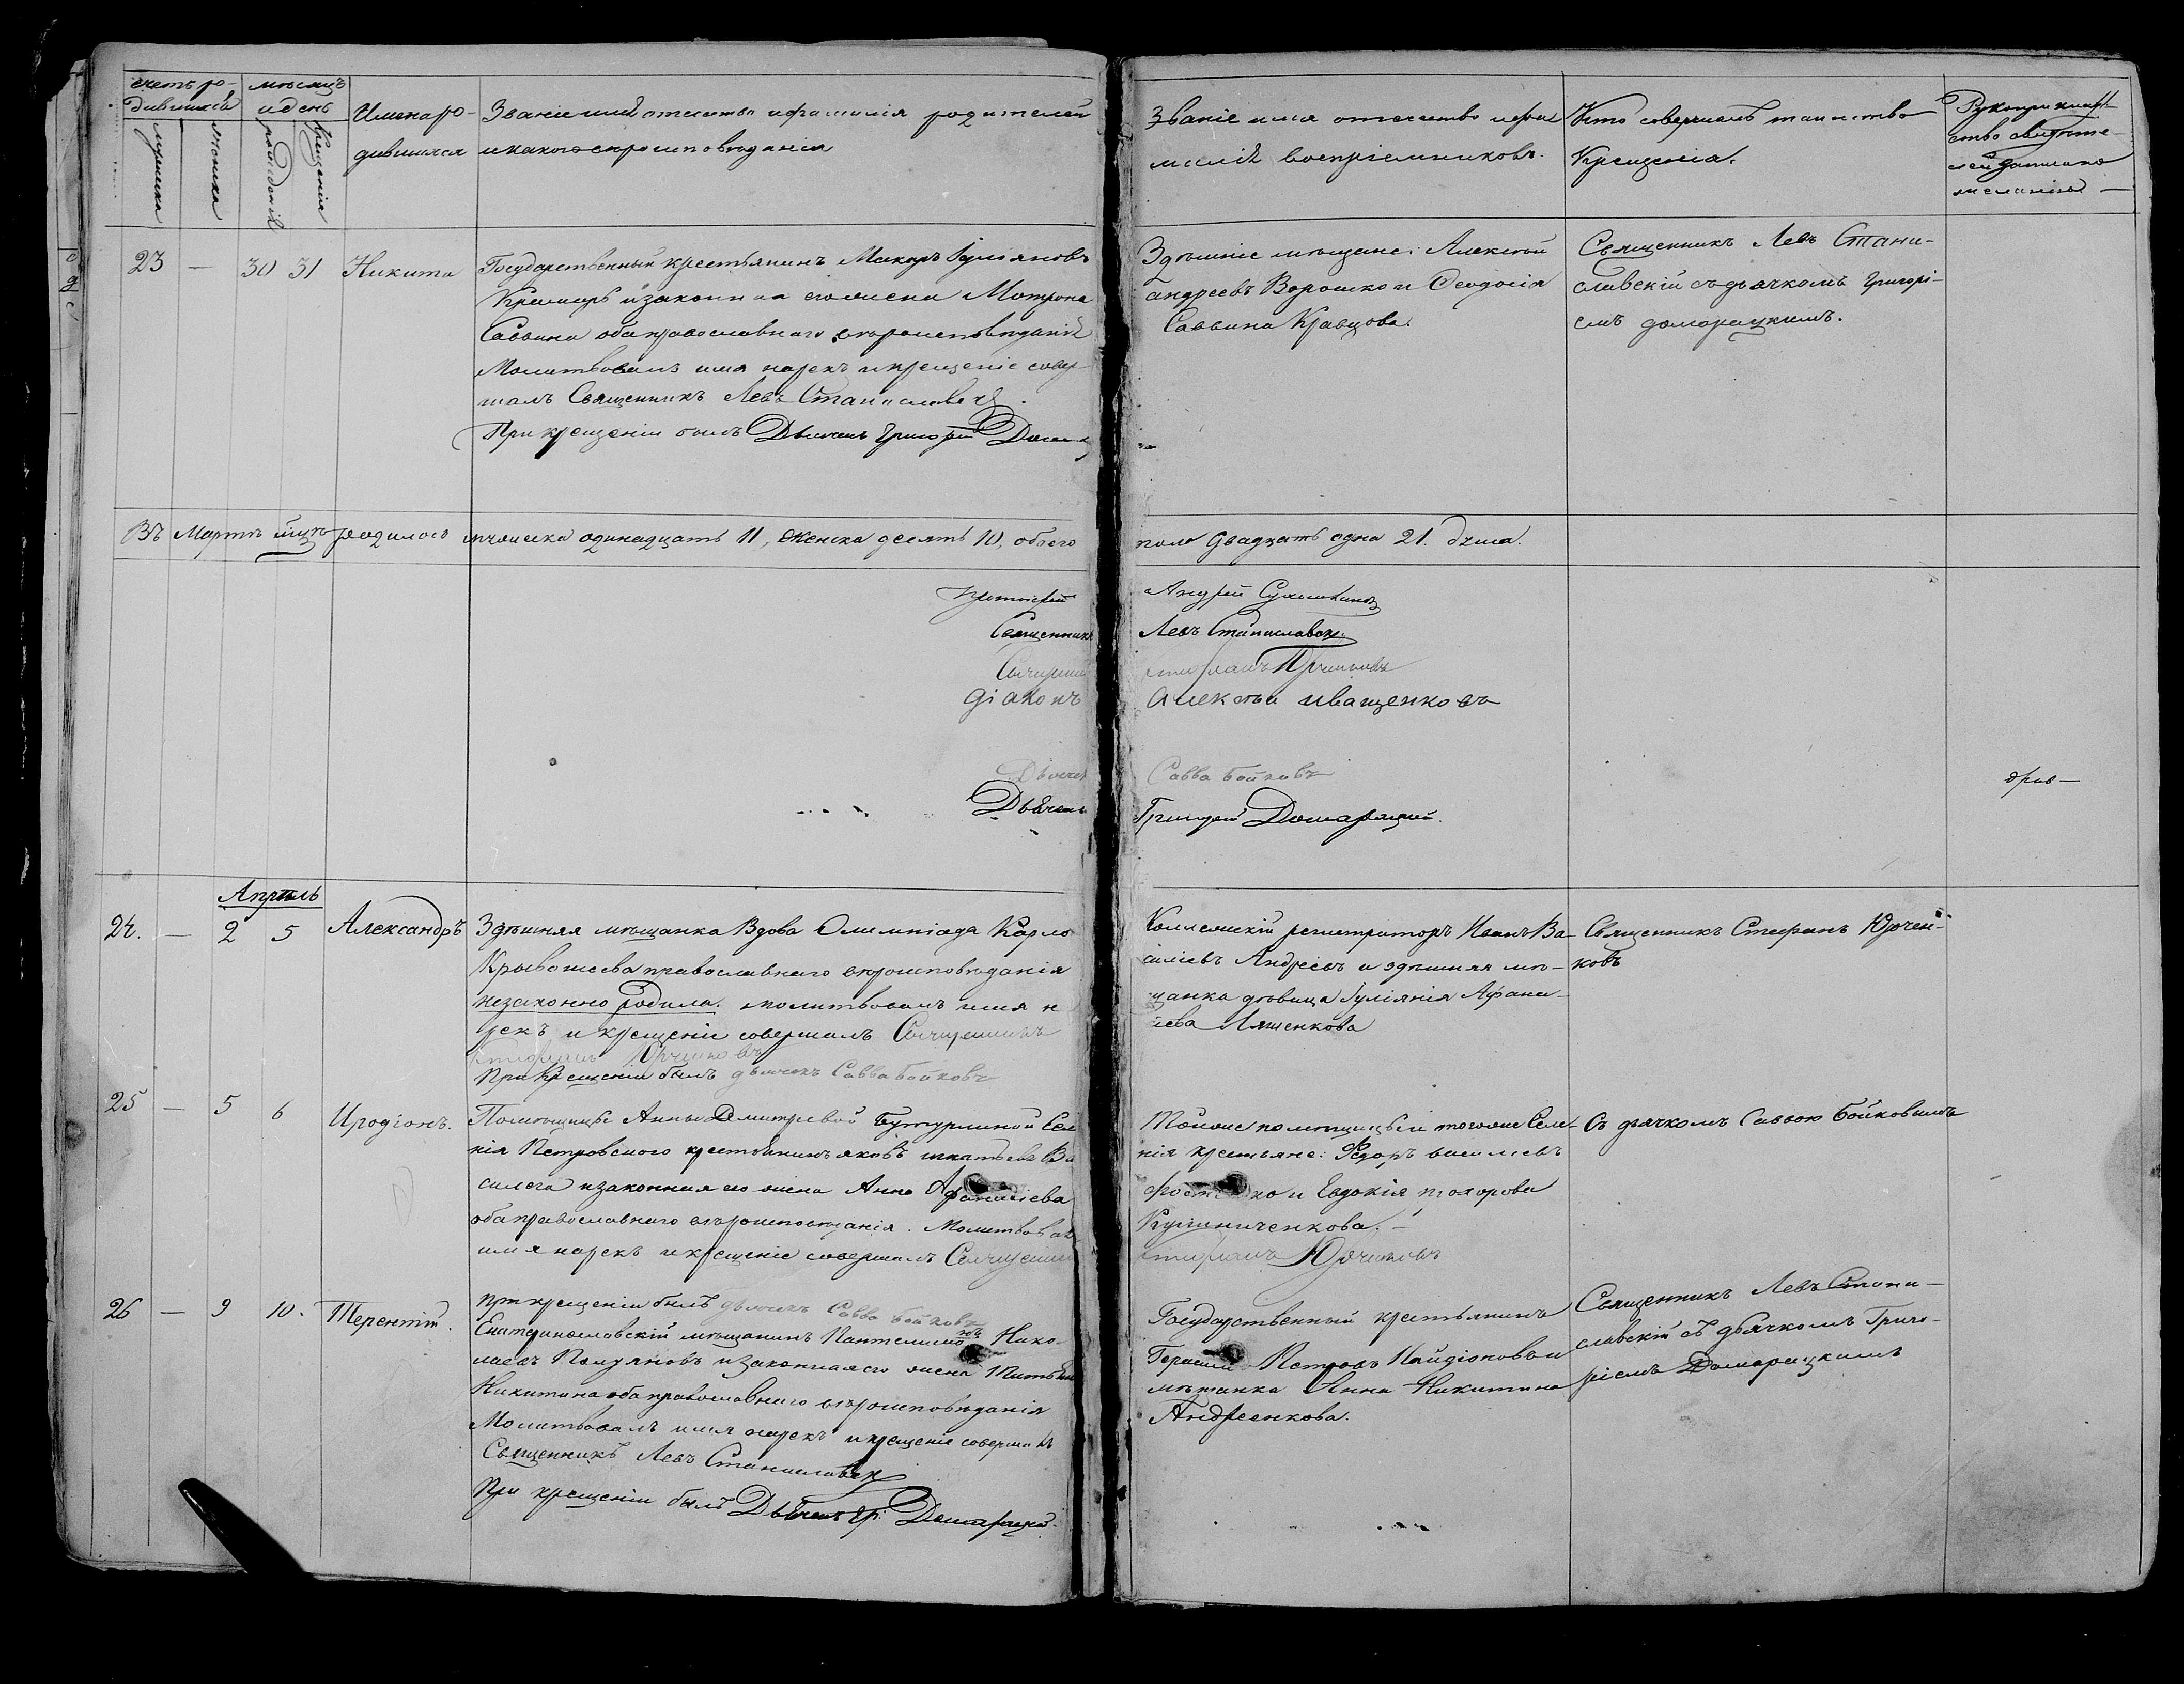 счетъ ро-
дившихся
мѣсяцъ
и день
мужеска
женска
рожденія
крещенія
Имена ро-
дившихся
Званіе имя отечество и фамилія родителей
и какого вѣроисповѣданія
Званіе имя отечество и фа
милія воспріемниковъ.
Кто совершалъ таинство
Крещенія.
Рукоприклад-
ство свидѣте-
лей записи по
желанію
23 — 30 31 Никита
Государственный крестьянинъ Макаръ Іуліяновъ
Крамаръ и законная его жена Матрона
Саввина оба православнаго вѣроисповѣданія
Молитвовалъ имя нарекъ и крещеніе совер-
шалъ Священникъ Левъ Станиславскій.
При крещеніи былъ Дьячекъ Григорій
Здѣшніе мѣщане: Алексѣй
Андреевъ Ворошко и Ѳеодосія
Саввина Кравцова.
Священникъ Левъ Стани-
славскій съ дьячкомъ Григорі-
емъ Домарацкимъ.
Въ Мартѣ мцѣ родилось мужеска одинадцать 11, женска десять 10, обоего
пола двадцать одна 21. душа.
Протоіерей Андрей
Священникъ Левъ Станиславскій
Священникъ Стефанъ Юрченковъ
Діаконъ Алексѣй Иващенковъ
Дьячекъ Савва Бойковъ
Дьячекъ Григорій Домарацкій.
Апрѣль
24. — 2 5 Александръ
Здѣшняя мѣщанка Вдова Олимпіада Карпо
Кривошеева православнаго вѣроисповѣданія
незаконно родила. молитвовалъ имя н
рекъ и крещеніе совершалъ Священникъ
Стефанъ Юрченковъ
При крещеніи былъ дьячекъ Савва Бойковъ
Коллежскій регистраторъ Иванъ Ва-
силіевъ Андреевъ и здѣшняя мѣ-
щанка дѣвица Іуліянія Афана-
сіева Ляшенкова
Священникъ Стефанъ Юрчен-
ковъ
25 — 5 6 Иродіонъ.
Помѣщицы Анны Дмитревой Бутурлиной Селе
нія Петровского крестьянинъ Яковъ Игнатьевъ Ва
силега и законная его жена Анна Афанасіева
оба православнаго вѣроисповѣданія. Молитвовалъ
имя нарекъ и крещеніе совершалъ Священникъ
Тойже помѣщицы и тогоже Селе-
нія крестьяне: Ѳедоръ Василіевъ
и Евдокія Прохорова
Кушниченкова.
Стефанъ Юрченковъ
Съ дьячкомъ Саввою Бойковымъ
26 — 9 10. Терентій.
При крещеніи былъ дьячекъ Савва Бойковъ
Екатеринославскій мѣщанинъ Пантелимонъ Нико-
лаевъ Полуяновъ и законная его жена
Никитина оба православнаго вѣроисповѣданія
Молитвовалъ имя нарекъ и крещеніе совершалъ
Священникъ Левъ Станиславскій
При крещеніи былъ Дьячекъ Гр. Домарацкій.
Государственный крестьянинъ
Герасимъ Петровъ Найдіоновъ и
мѣщанка Анна Никитина
Андреенкова.
Священникъ Левъ Стани-
славскій съ дьячкомъ Григо-
ріемъ Домарацкимъ